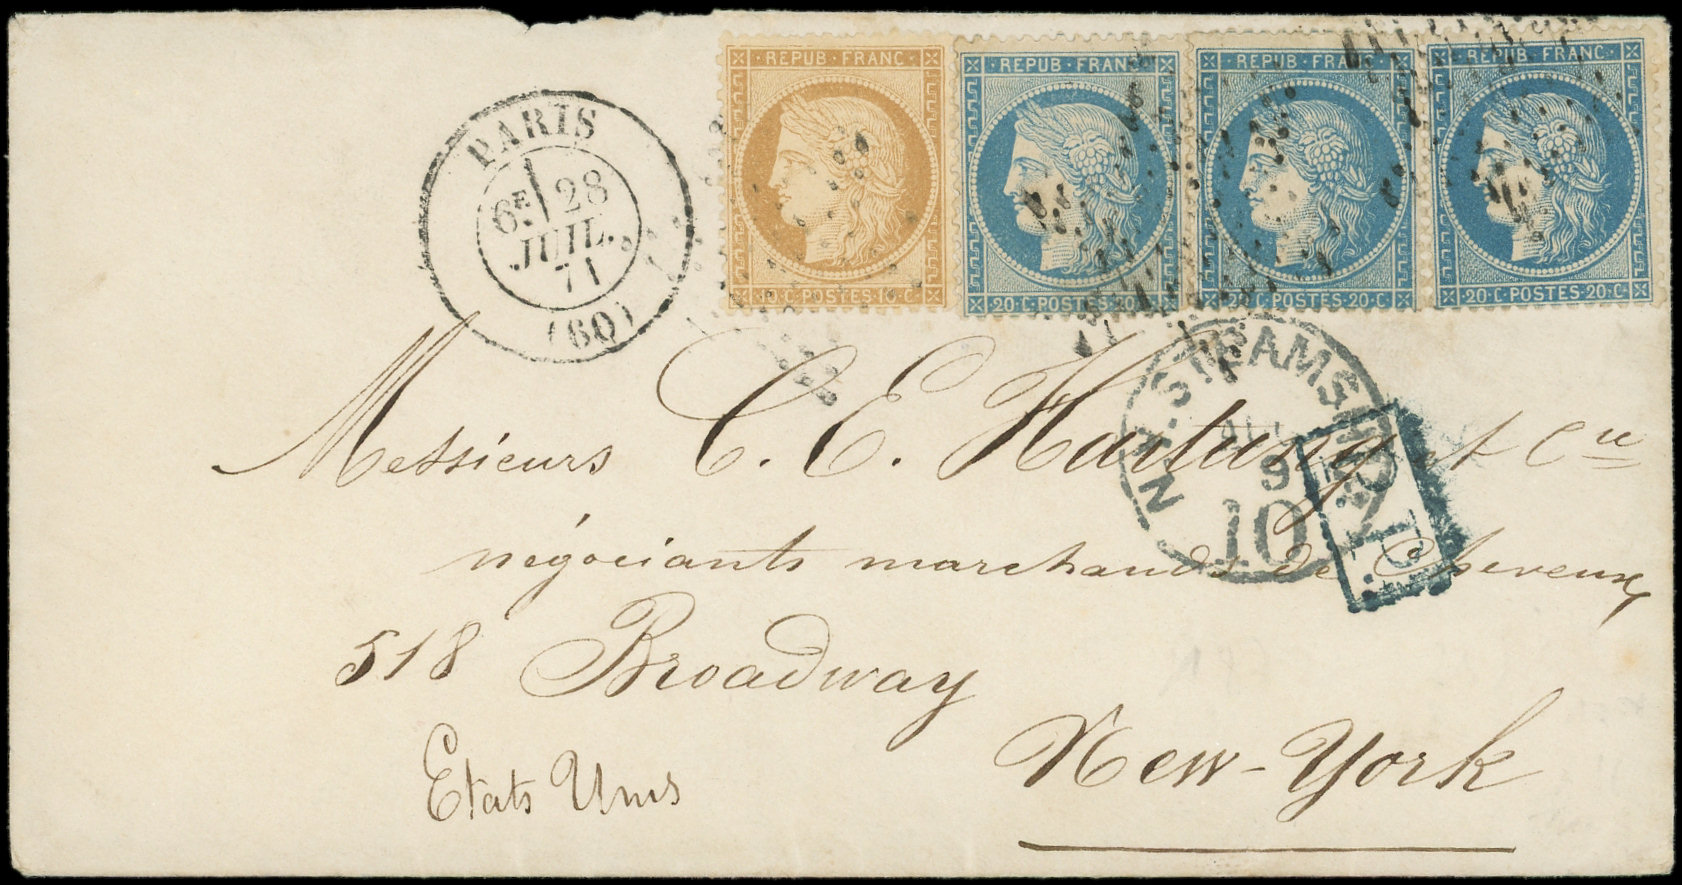 REPUB·FRANC·
REPUB·FRANC·
REPUB·FRANC·
REPUB·FRANC·
20·C·POSTES·20·C
20·C·POSTES·20·C
20·C·POSTES·20·C
PARIS
6E 28
JUIL.
71
(60)
N.Y. STEAMSHIP
9
10
P.D.
Messieurs C. E. Hartung et Cie
négociants marchands de Cheveux
518 Broadway
New-York
Etats Unis